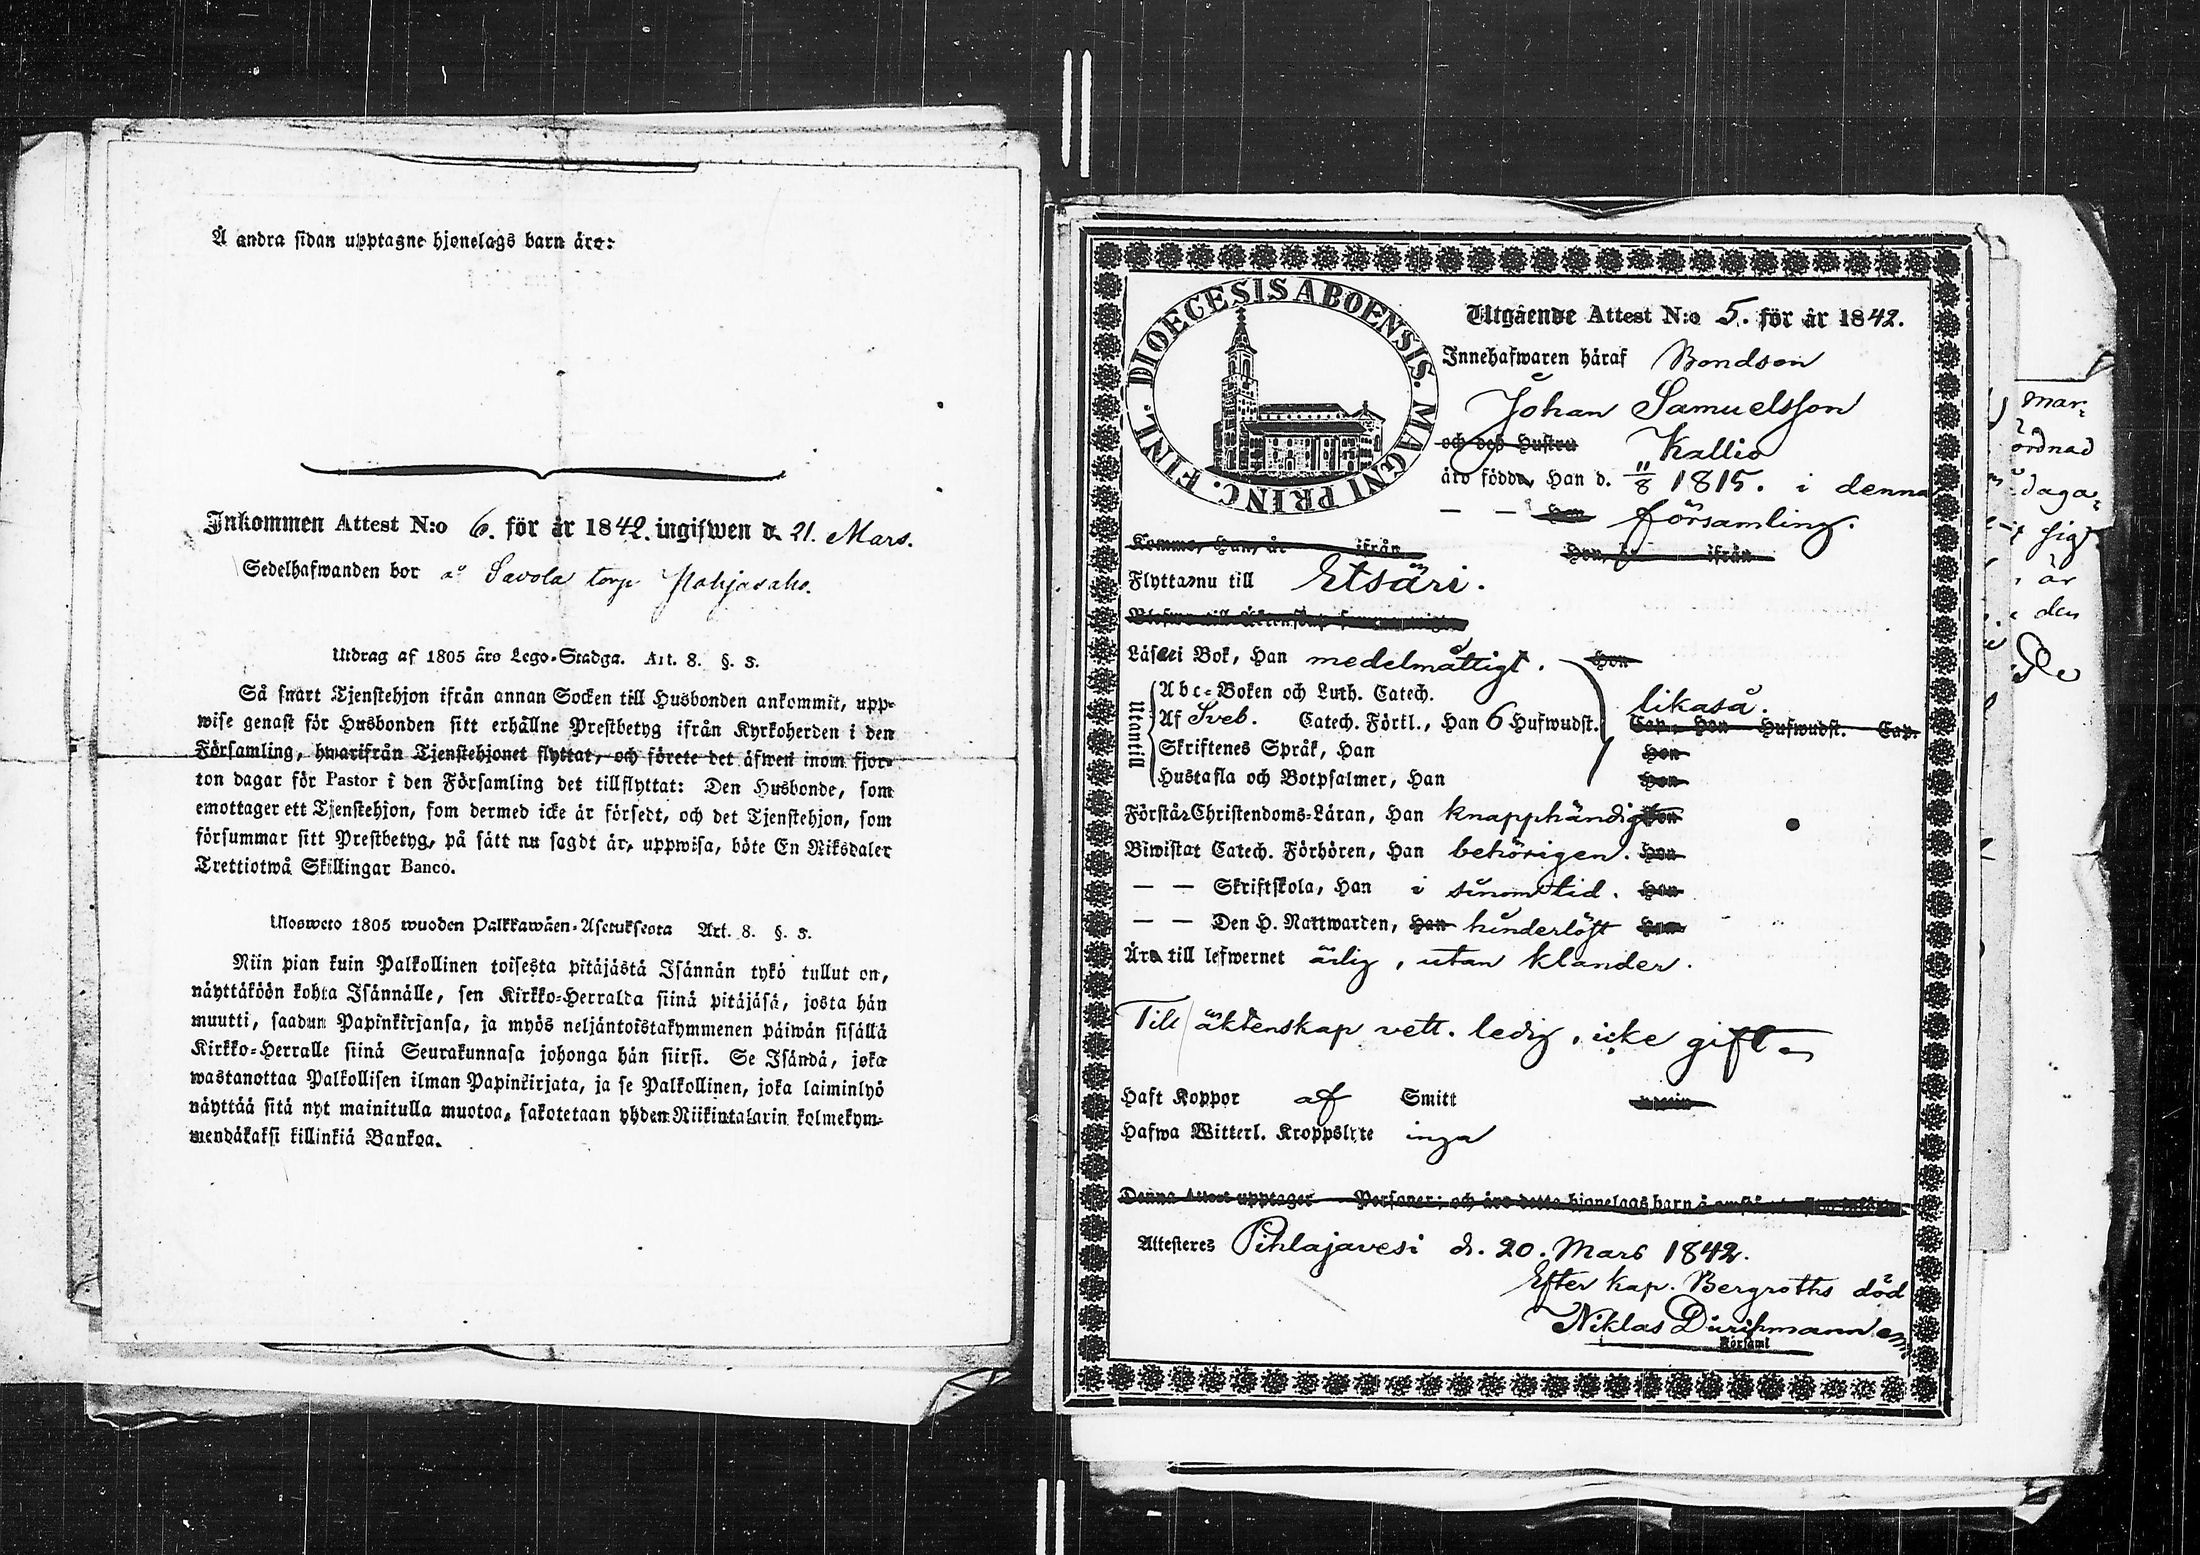 Å andra sidan upptagne hjonelags barn äro:
Inkommen Attest N:o 6. för år 1842. ingifwen d. 21. Mars.
Sedelhafwanden bor å Savola torp Pohjasaho.
Utdrag af 1805 års Lego-Stadga. Art. 8. §. 3.
Så snart Tjenstehjon ifrån annan Socken till Husbonden ankommit, upp-
wise genast för Husbonden sitt erhållne Prestbetyg ifrån Kyrkoherden i den
Församling, hwarifrån Tjenstehjonet flyttat, och förete det äfwen inom fjor-
ton dagar för Pastor i den Församling det tillflyttat: Den Husbonde, som
emottager ett Tjenstehjon, som dermed icke är försedt, och det Tjenstehjon, som
försummar sitt Prestbetyg, på sätt nu sagdt är, uppwisa, böte En Riksdaler
Trettiotwå Skillingar Banco.
Ulosweto 1805 wuoden Palkkawäen-Asetuksesta Art. 8. §. 3.
Niin pian kuin Palkollinen toisesta pitäjästä Isännän tykö tullut on,
näyttäköön kohta Isännälle, sen Kirkko-Herralda siinä pitäjäsä, josta hän
muutti, saadun Papinkirjansa, ja myös neljäntoistakymmenen päiwän sisällä
Kirkko-Herralle siinä Seurakunnasa johonga hän siirsi. Se Isändä, joka
wastanottaa Palkollisen ilman Papinkirjata, ja se Palkollinen, joka laiminlyö
näyttää sitä nyt mainitulla muotoa, sakotetaan yhden Riikintalarin kolmekym-
mendäkaksi killinkiä Bankoa.
DIOECESIS ABOENSIS. MAGNI PRINC. FINL.
Utgående Attest N:o 5. för år 1842.
Innehafwaren häraf Bondson
Johan Samuelsson
och deß Hustru Kallio
äro födde, Han d. 11/8 1815. i denna
— — Hon församling.
Komne, Han, år ifrån Hon, år ifrån
Flytta nu till Etsäri.
Läsa i Bok, Han medelmåttigt. Hon
Utantill
Abc-Boken och Luth. Catech.
Af Sveb. Catech. Förkl., Han 6 Hufwudst. likaså.
Cap. Hon Hufwudst. Cap.
Skriftenes Språk, Han Hon
Hustafla och Botpsalmer, Han Hon
Förstår Christendoms-Läran, Han knapphändigt Hon
Biwistat Catech. Förhören, Han behörigen. Hon
— — Skriftskola, Han i sinom tid. Hon
— — Den H. Nattwarden, Han hinderlöst Hon
Äro till lefwernet ärlig, utan klander.
Till äktenskap vett. ledig, icke gift
Haft Koppor af Smitt
Hafwa Witterl. Kroppslyte inga
Denna Attest upptager Personer; och äro detta hjonelags barn å
Attesteres Pihlajavesi d. 20. Mars 1842.
Efter kap. Bergroths död
Niklas Durchman
Församl
mar-
ordnad
daga-
sig
är
den